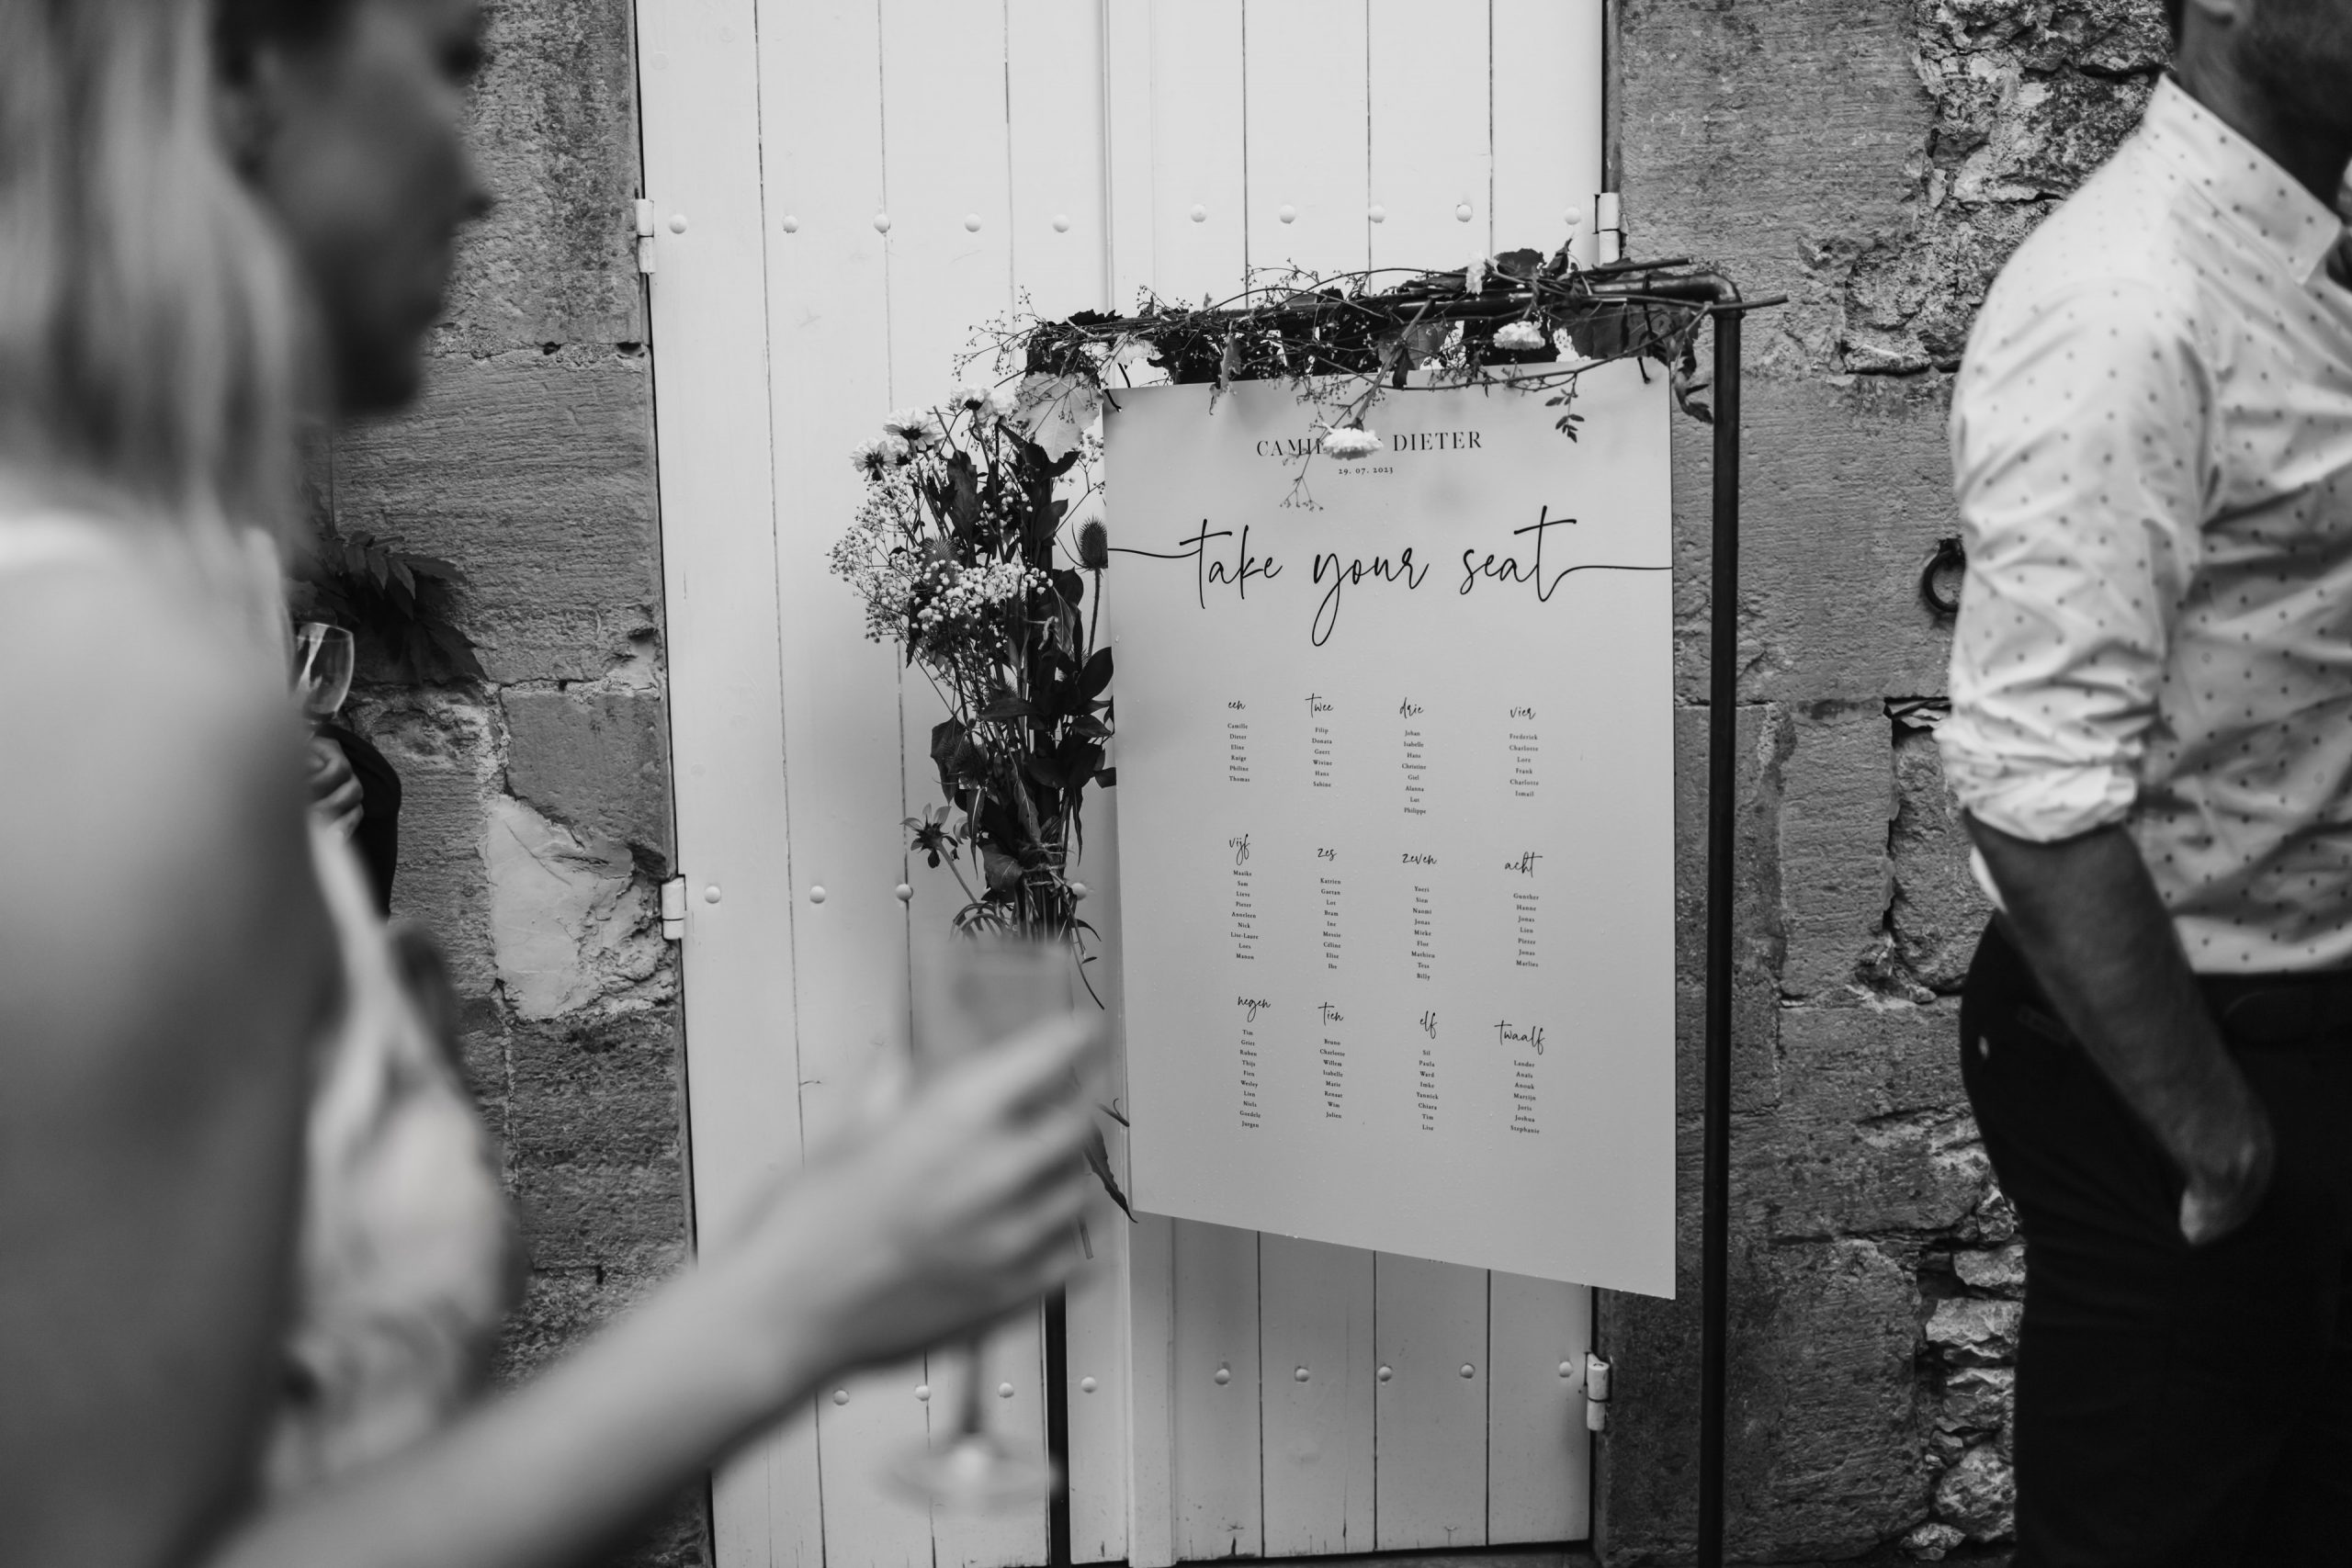 DIETER
29. 07. 2023
take your seat
een
Camille
Dieter
Eline
Philine
Thomas
twee
Filip
Donata
Geert
Wivine
Hans
Sabine
drie
Johan
Isabelle
Hans
Christine
Giel
Alanna
Lut
Philippe
vier
Frederick
Charlotte
Lore
Frank
Charlotte
Ismail
vijf
Maaike
Sam
Lieve
Pieter
Anneleen
Nick
Lise-Laure
Loes
Manon
zes
Katrien
Gaetan
Lot
Bram
Ine
Céline
Elise
Ike
zeven
Yorri
Sien
Naomi
Jonas
Mieke
Flor
Mathieu
Tess
Billy
acht
Gunther
Hanne
Jonas
Lien
Pieter
Jonas
Marlies
negen
Tim
Gries
Ruben
Thijs
Fien
Wesley
Lien
Niels
Goedele
Jurgen
tien
Bruno
Charlotte
Willem
Isabelle
Marie
Renaat
Wim
Jolien
elf
Sil
Paula
Ward
Imke
Yannick
Chiara
Tim
Lise
twaalf
Lander
Anaïs
Anouk
Martijn
Joris
Joshua
Stephanie